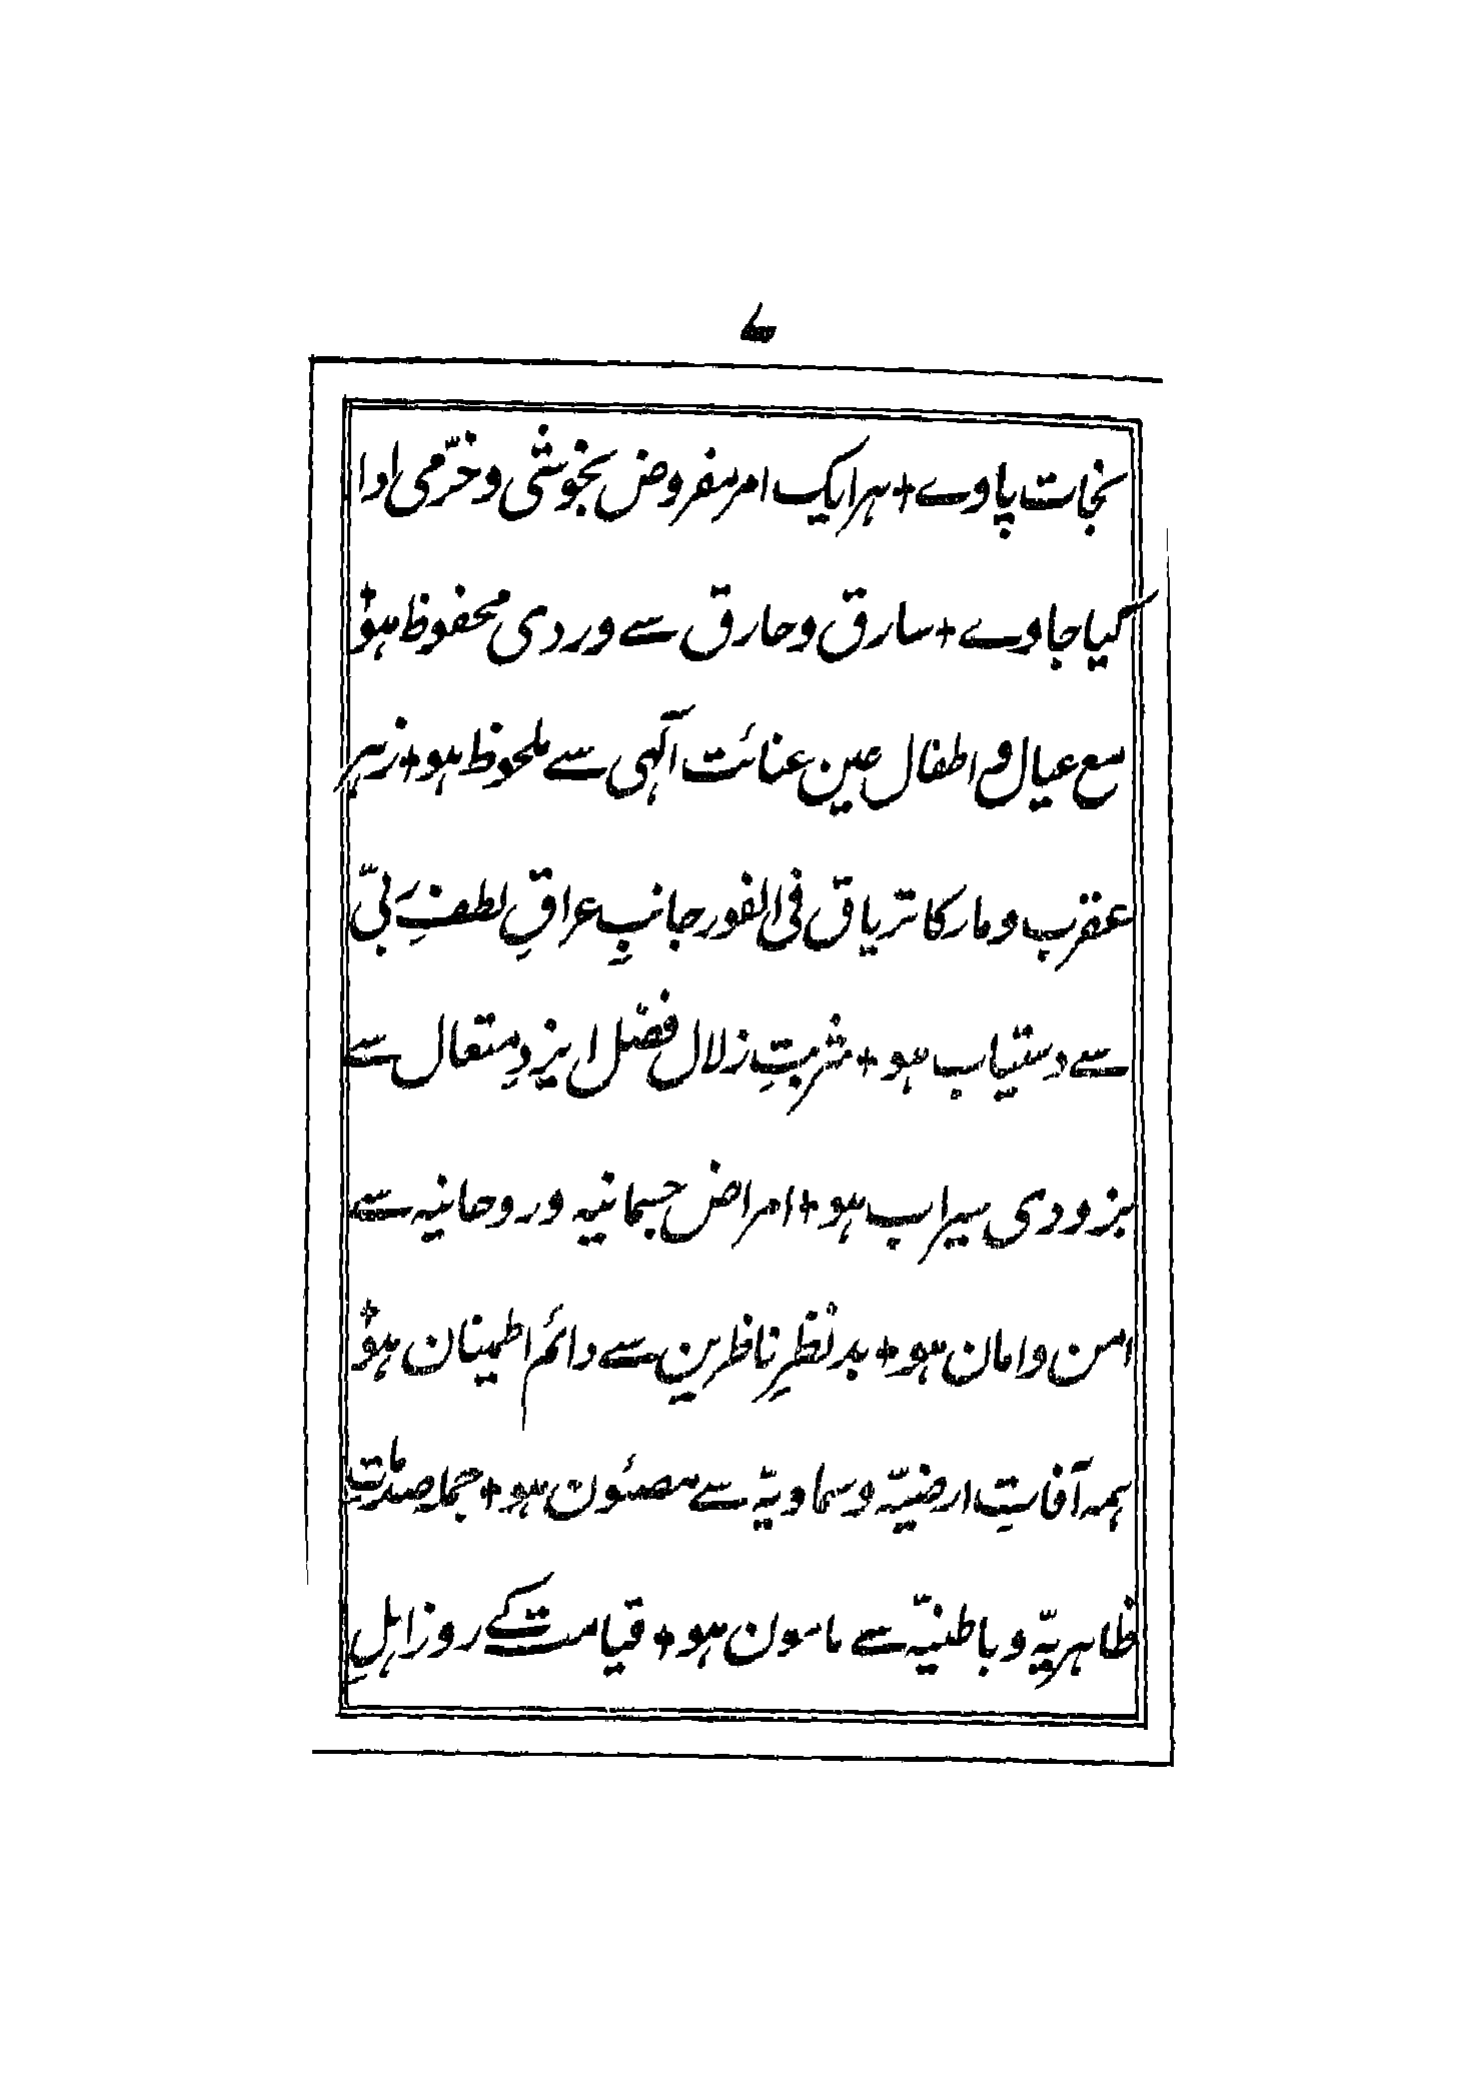 ۷
نجات پاوے + ہر ایک امر مفروض بخوشی و خرّمی ادا
کیا جاوے + سارق و حارق سے وردی محفوظ ہو +
مع عیال و اطفال عین عنائت آلٰہی سے ملحوظ ہو + زہر
عقرب و مار کا تریاق فی الفور جانبِ عراقِ لطفِ ربّی
سے دستیاب ہو + شربتِ زلال فضل ایزدِ متعال سے
بزودی سیراب ہو + امراض جسمانیہ و روحانیہ سے
امن و امان ہو + بد نظرِ ناظرین سے دائم اطمینان ہو +
ہمہ آفاتِ ارضیّہ و سماویّہ سے مصئون ہو + جملہ صدماتِ
ظاہریّہ و باطنیّہ سے مامون ہو + قیامت کے روز اہلِ